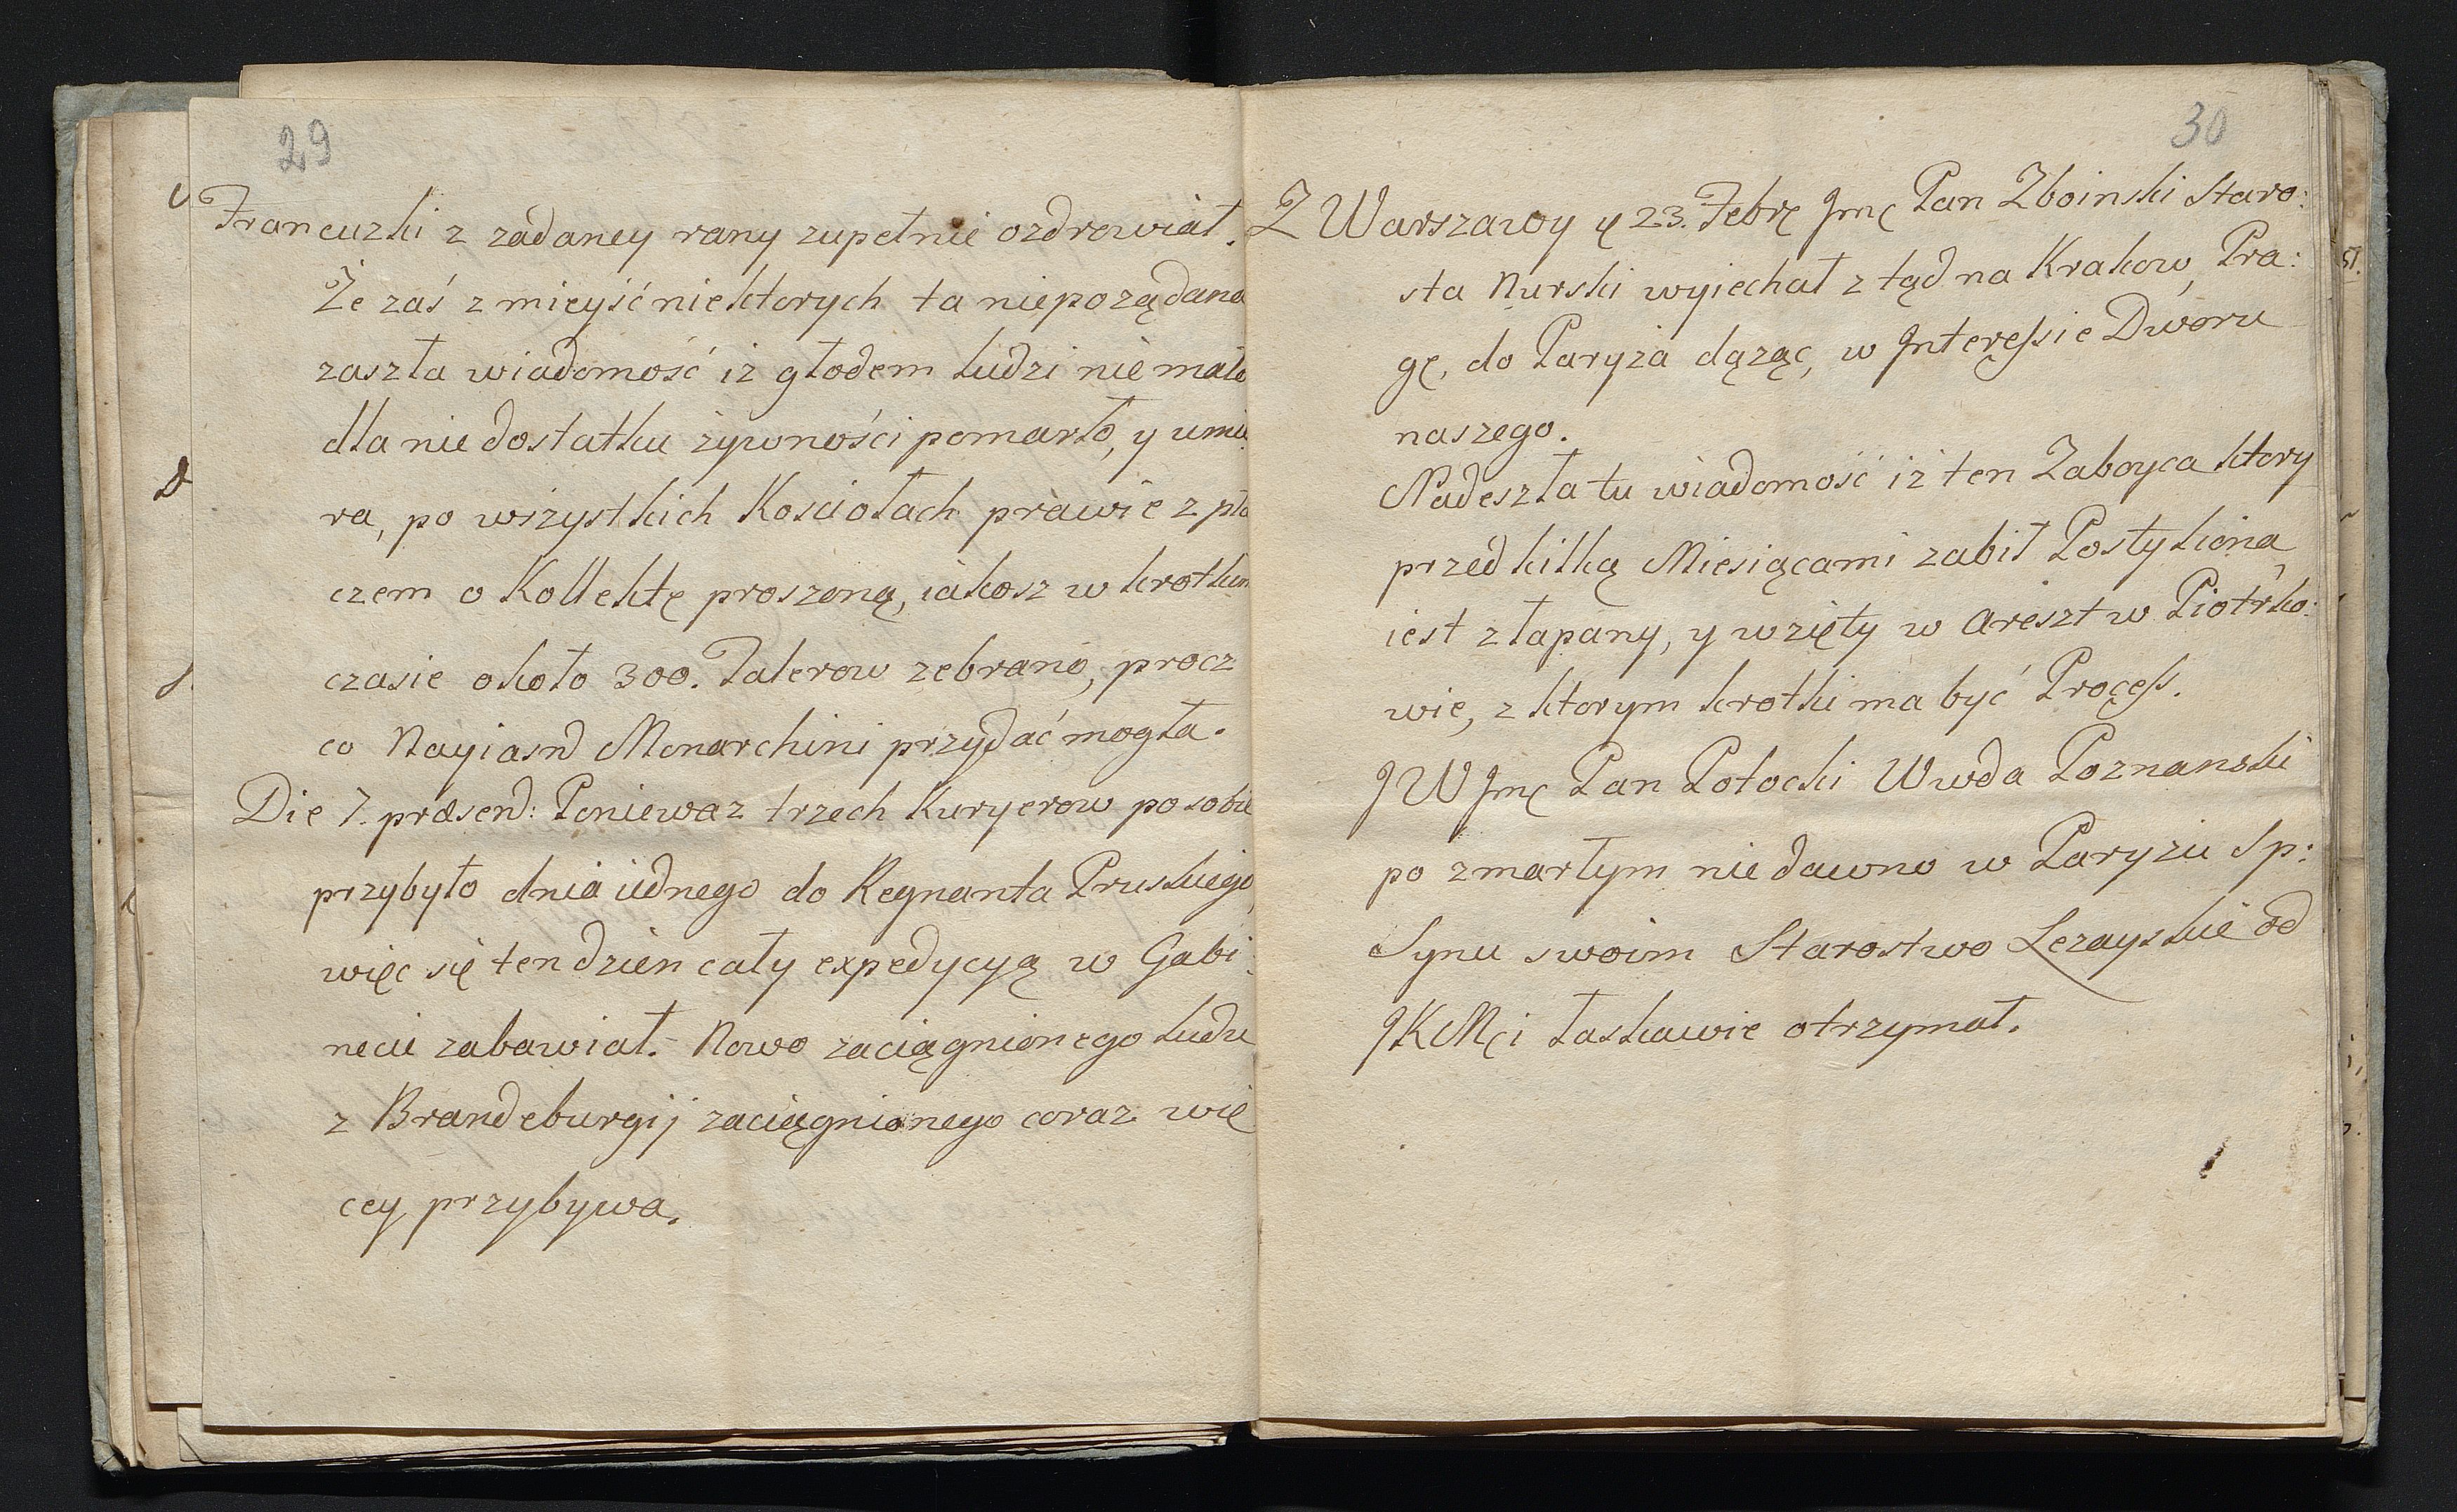 29
Francuzki z zadaney rany zupełnie ozdrowiał.
Że zaś z mieyść niektorych ta niepożądana
zaszła wiadomość iż głodem ludzi nie mało
dla niedostatku żywności pomarło, y umie
ra, po wszystkich Kosciołach prawie z pła
czem o Kollektę proszoną, iakosz w krotkim
czasie około 300. Talerow zebrano, procz
co Nayiasnd Monarchini przydać mogła.
Die 7. præsend: Poniewaz trzech Kuryerow po sobie
przybyło dnia iednego do Regnanta Pruskiego,
więc się ten dzien cały expedycyą w Gabi:
necie zabawiał. Nowo zaciągnionego ludu
z Brandeburgij zaciągnionego coraz wię
cey przybywa.
30
Z Warszawy 23. Febrę Jmę Pan Zboinski Staro:
sta Nurski wyiechał z tąd na Krakow, Pra:
gę, do Paryża dążąc, w Interessie Dworu
naszego.
Nadeszła tu wiadomość iż ten Zaboyca ktory
przed kilką Miesiącami zabił Postyliona,
iest złapany, y wzięty w areszt w Piotrko:
wie, z ktorym krotki ma być Process.
JW Jmę Pan Potocki Wwda Poznanski
po zmarłym nie dawno w Paryżu Sp:
Synu swoim Starostwo Leżayskie od
JKMći łaskawie otrzymał.